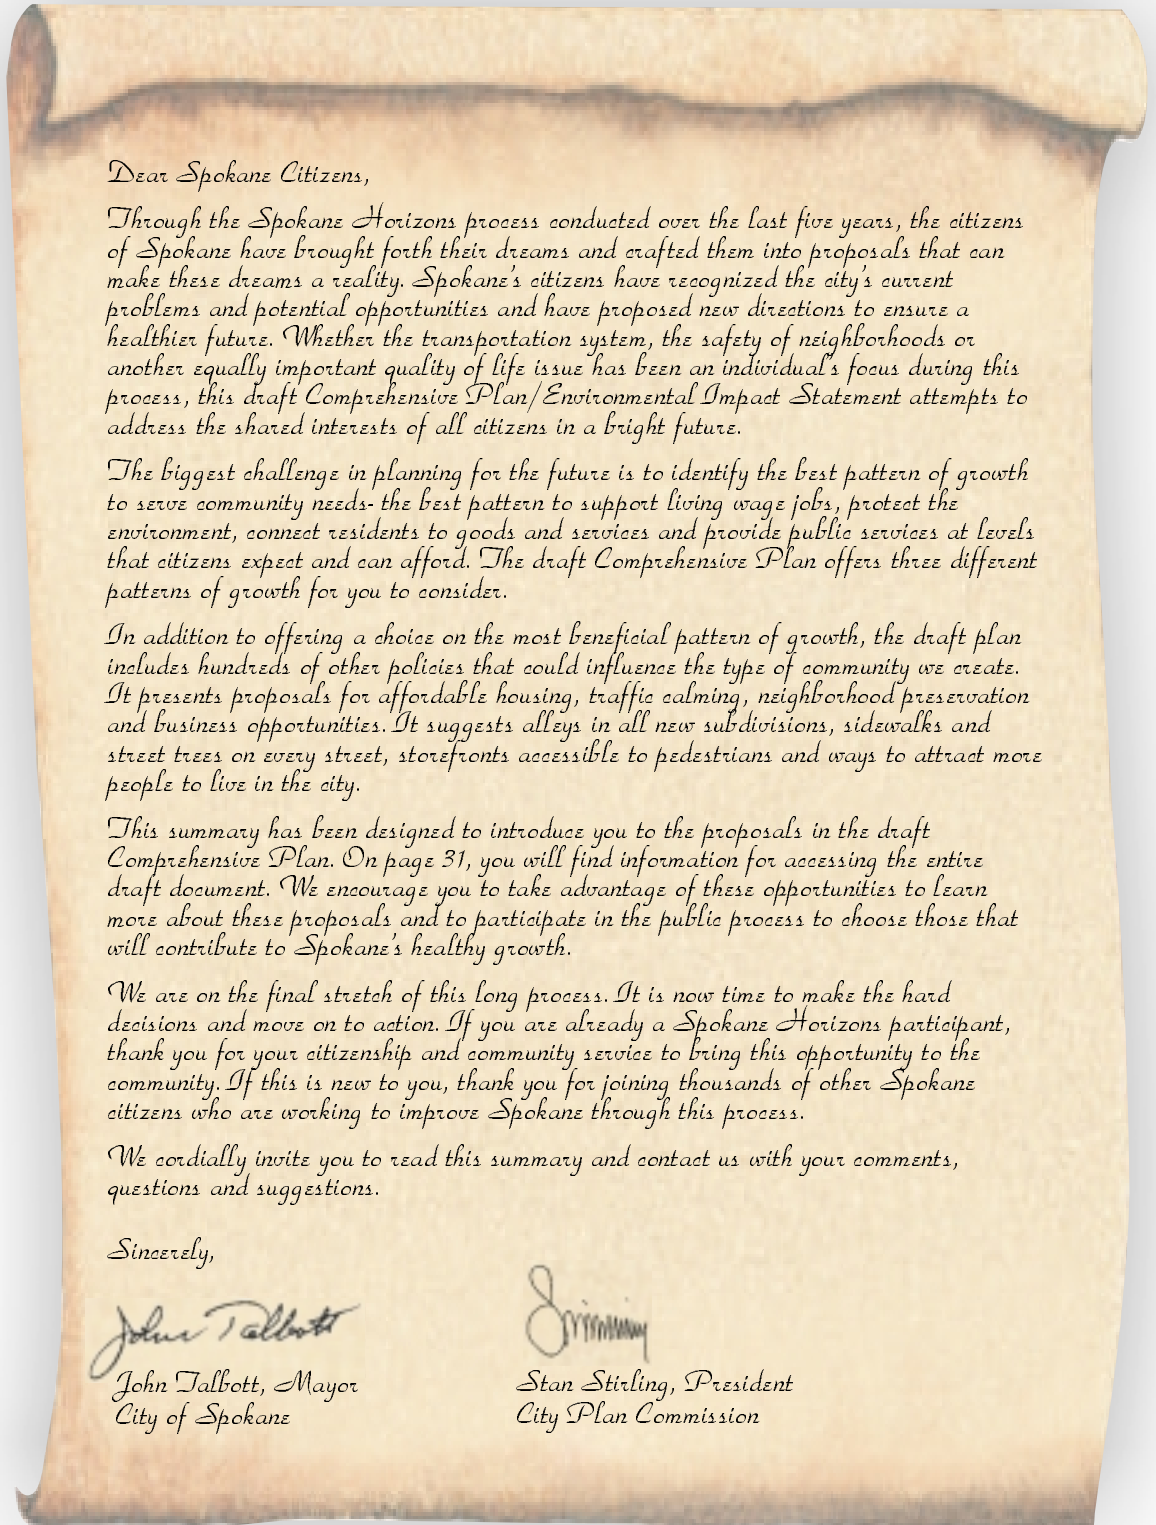 Dear Spokane Citizens,
Through the Spokane Horizons process conducted over the last five years, the citizens
of Spokane have brought forth their dreams and crafted them into proposals that can
make these dreams a reality. Spokane's citizens have recognized the city's current
problems and potential opportunities and have proposed new directions to ensure a
healthier future. Whether the transportation system, the safety of neighborhoods or
another equally important quality of life issue has been an individual's focus during this
process, this draft Comprehensive Plan/Environmental Impact Statement attempts to
address the shared interests of all citizens in a bright future.
The biggest challenge in planning for the future is to identify the best pattern of growth
to serve community needs- the best pattern to support living wage jobs, protect the
environment, connect residents to goods and services and provide public services at levels
that citizens expect and can afford. The draft Comprehensive Plan offers three different
patterns of growth for you to consider.
In addition to offering a choice on the most beneficial pattern of growth, the draft plan
includes hundreds of other policies that could influence the type of community we create.
It presents proposals for affordable housing, traffic calming, neighborhood preservation
and business opportunities. It suggests alleys in all new subdivisions, sidewalks and
street trees on every street, storefronts accessible to pedestrians and ways to attract more
people to live in the city.
This summary has been designed to introduce you to the proposals in the draft
Comprehensive Plan. On page 31, you will find information for accessing the entire
draft document. We encourage you to take advantage of these opportunities to learn
more about these proposals and to participate in the public process to choose those that
will contribute to Spokane's healthy growth.
We are on the final stretch of this long process. It is now time to make the hard
decisions and move on to action. If you are already a Spokane Horizons participant,
thank you for your citizenship and community service to bring this opportunity to the
community. If this is new to you, thank you for joining thousands of other Spokane
citizens who are working to improve Spokane through this process.
We cordially invite you to read this summary and contact us with your comments,
questions and suggestions.
Sincerely,
John Talbott
John Talbott, Mayor
City of Spokane
Stan Stirling, President
City Plan Commission